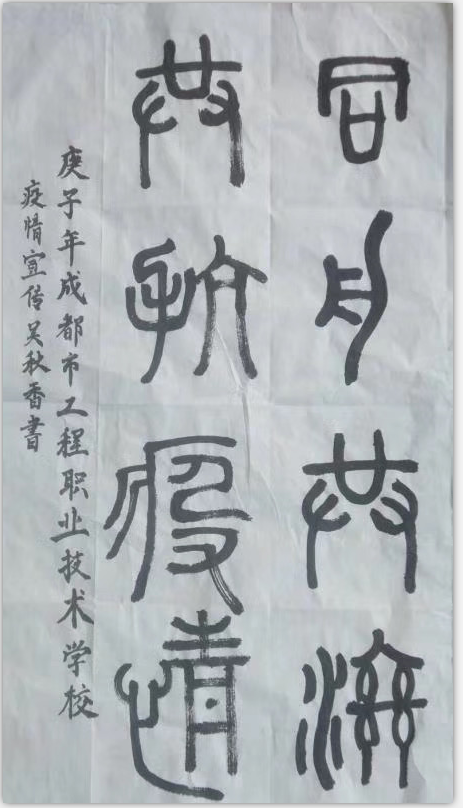 同舟共濟
共抗疫情
庚子年成都市工程职业技术学校
疫情宣传吴秋香書